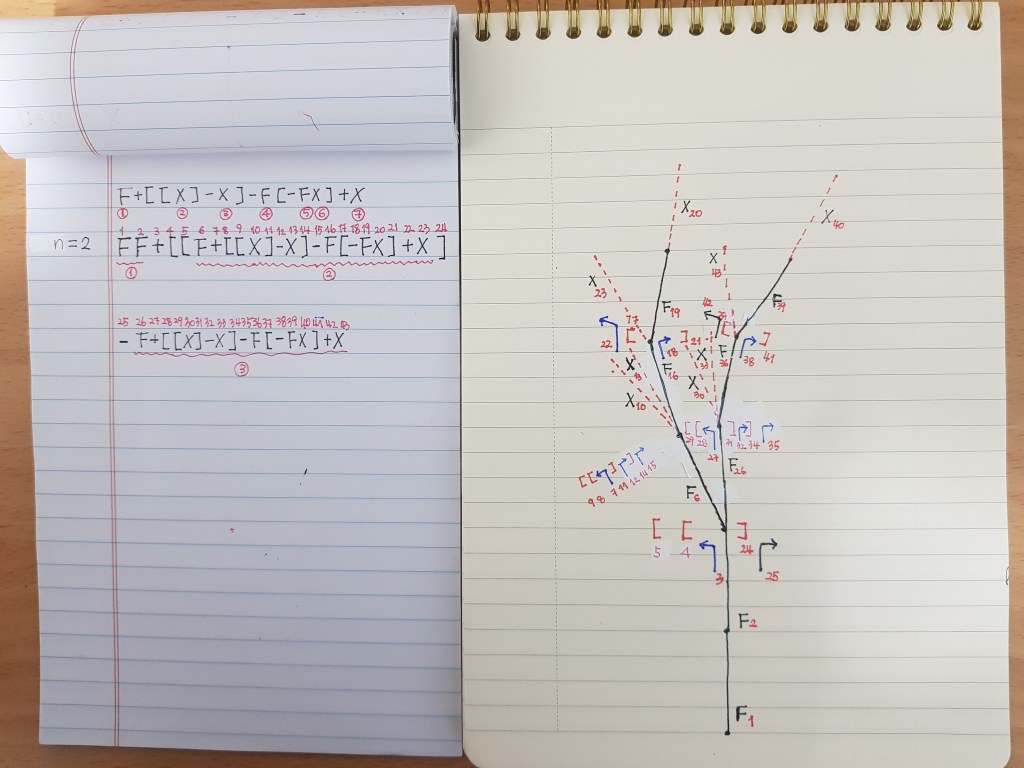 F+[[X]-X]-F[-FX]+X
① ② ③ ④ ⑤ ⑥ ⑦
1 2 3 4 5 6 7 8 9 10 11 12 13 14 15 16 17 18 19 20 21 22 23 24
n=2 FF+[[F+[[X]-X]-F[-FX]+X]
① ②
25 26 27 28 29 30 31 32 33 34 35 36 37 38 39 40 41 42 43
-F+[[X]-X]-F[-FX]+X
③
X20
X40
X 43
X 23
F19
F39
42
[ 17
22
18
] 21
[
F 36
38
] 41
X
F16
X 33
X30
X10
[ [ ] ]
29 28 27 31 32 34 35
F26
[ [ ] ]
9 8 7 11 12 14 15
F6
[ [ ]
5 4 24
3 25
F2
F1